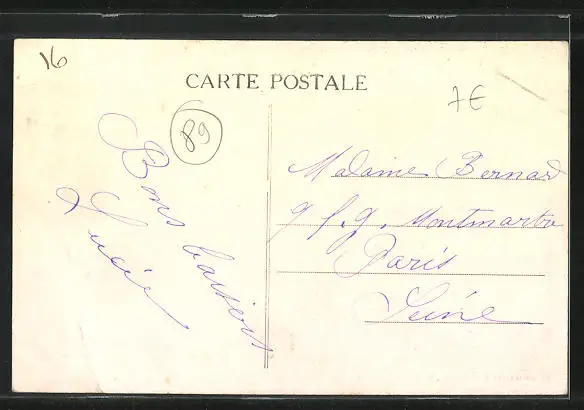 16
CARTE POSTALE
7€
89
Bons baisers
Lucie
Madame Bernard
9 f. g. Montmartre
Paris
Seine